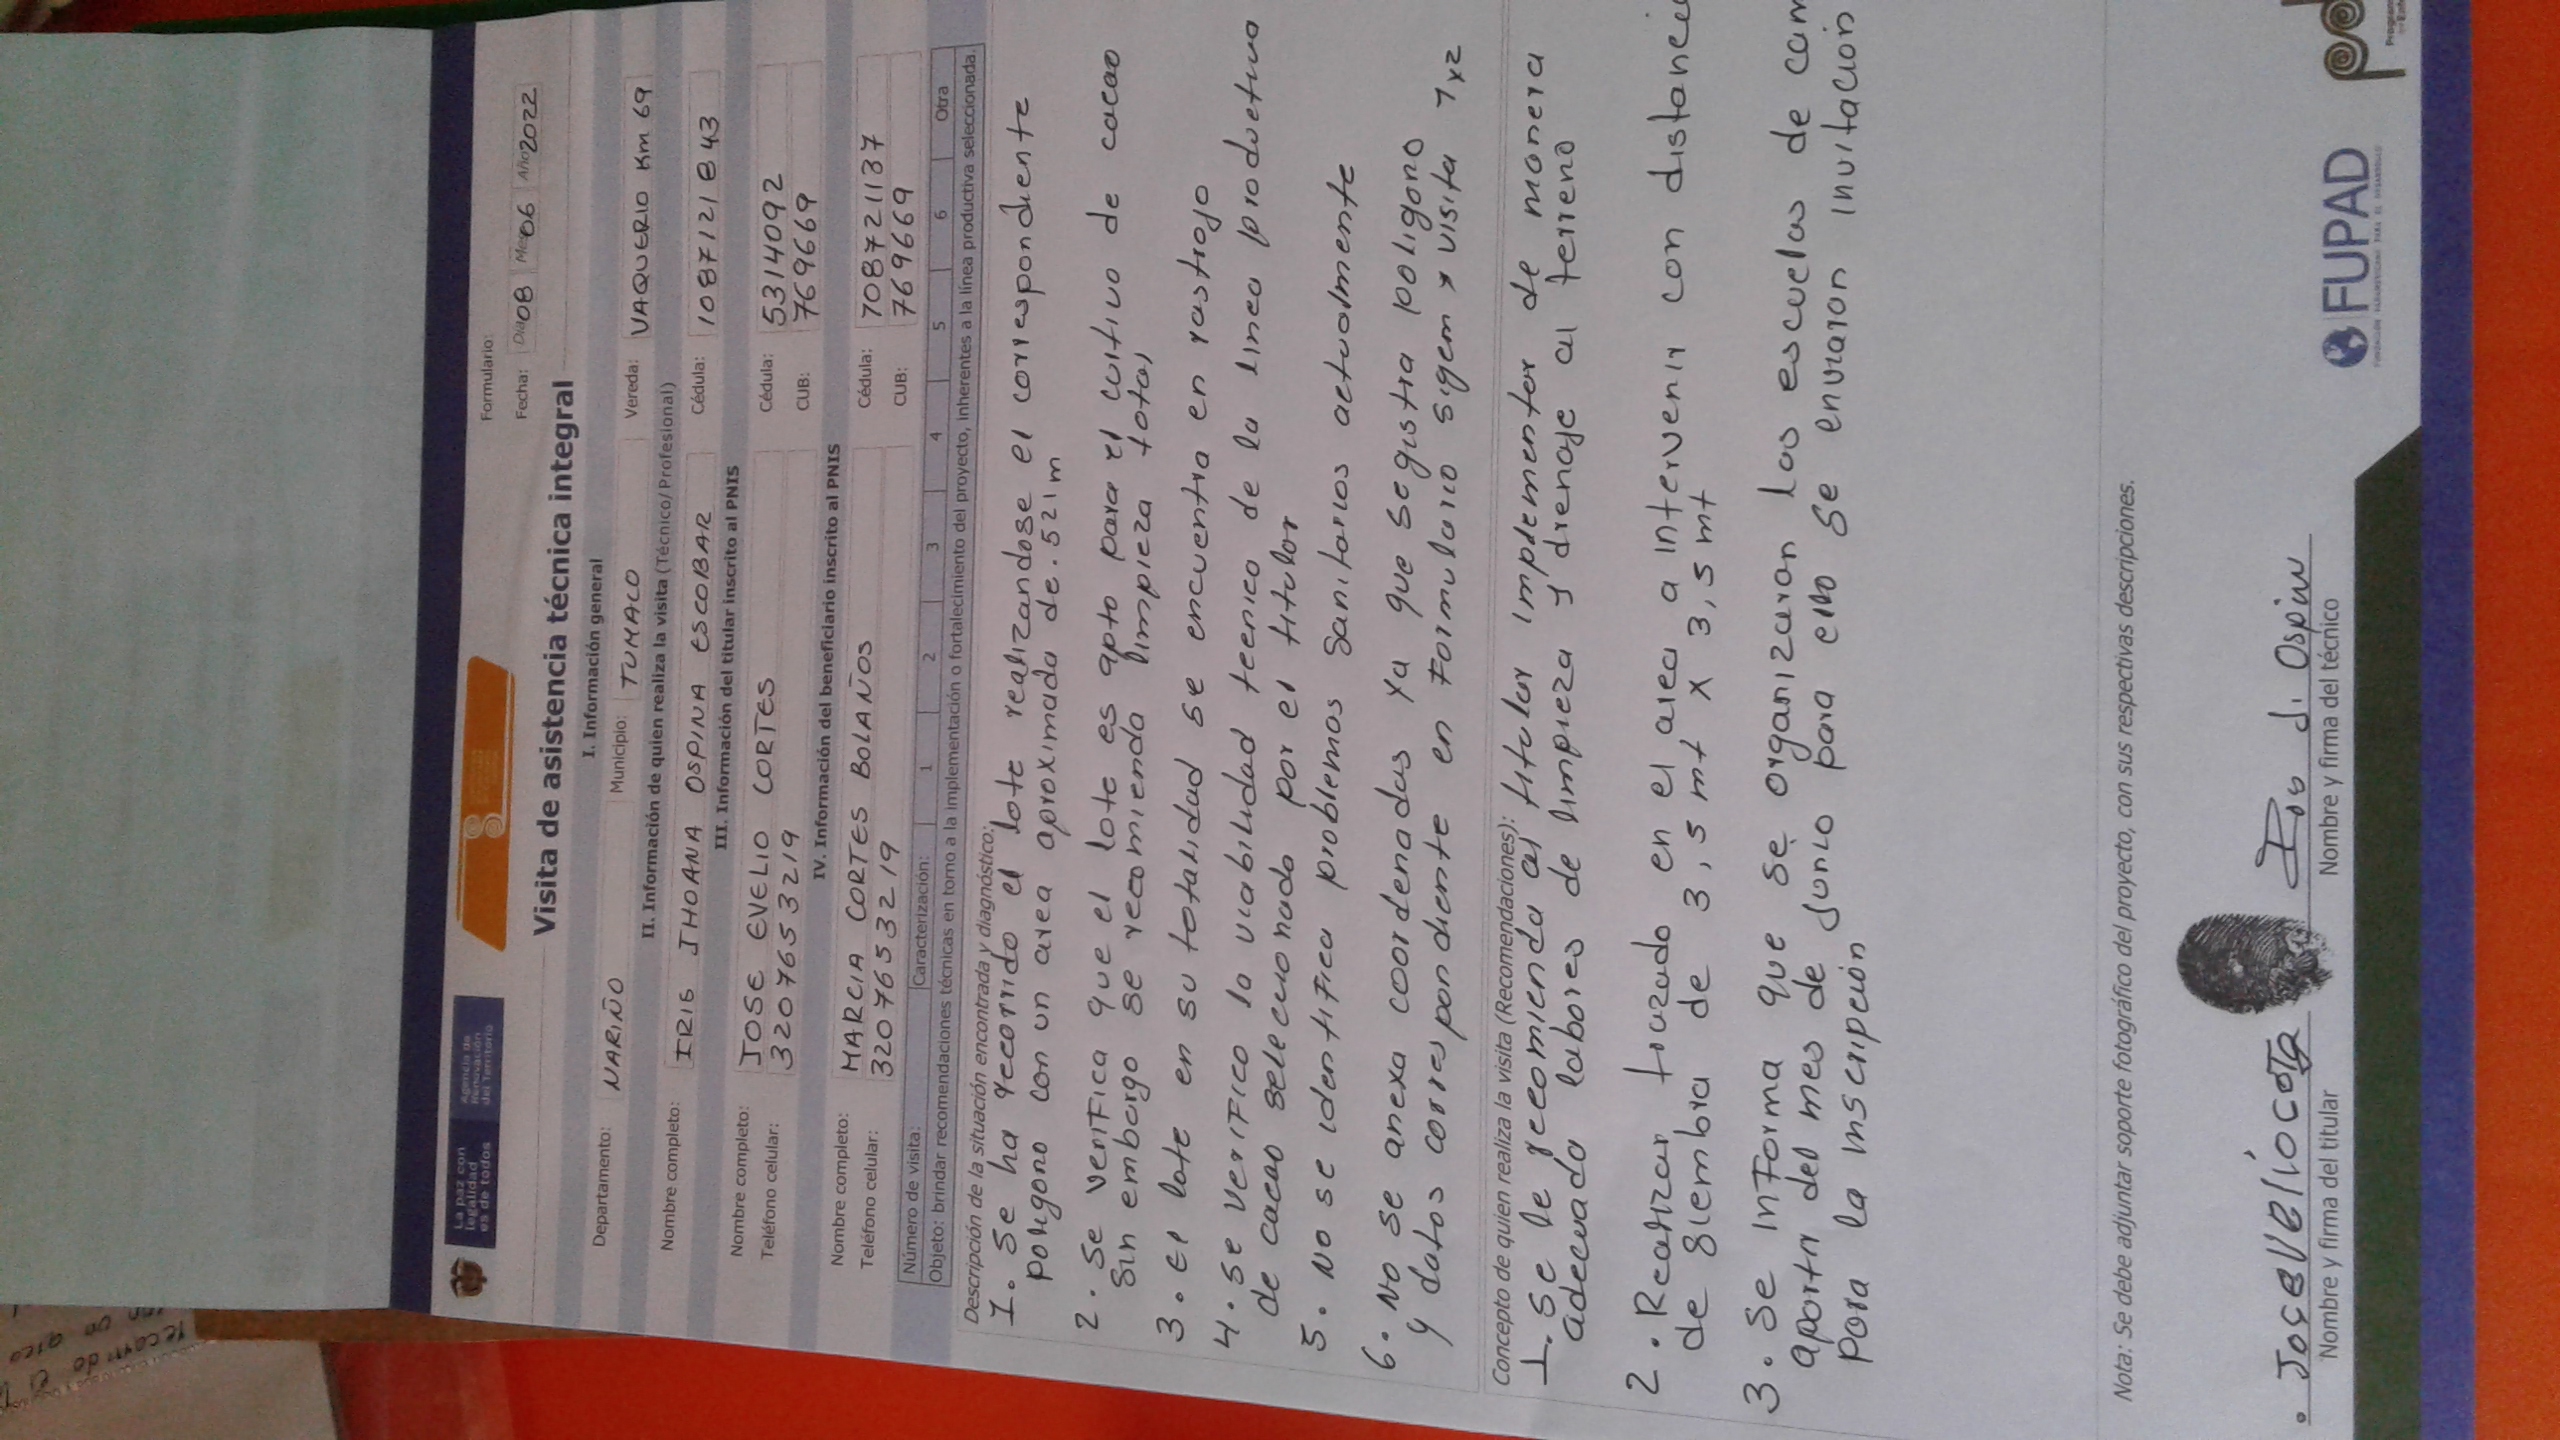 La paz con
legalidad
es de todos
Agencia de
Renovación
del Territorio
Formulario:
Fecha: Día 08 Mes 06 Año 2022
Visita de asistencia técnica integral
I. Información general
Departamento: NARIÑO Municipio: TUMACO Vereda: VAQUERIO Km 69
II. Información de quien realiza la visita (Técnico/ Profesional)
Nombre completo: IRIS JHOANA OSPINA ESCOBAR Cédula: 1087121843
III. Información del titular inscrito al PNIS
Nombre completo: JOSE EVELIO CORTES Cédula: 5314092
Teléfono celular: 3207653219 CUB: 769669
IV. Información del beneficiario inscrito al PNIS
Nombre completo: MARCIA CORTES BOLAÑOS Cédula: 1087211137
Teléfono celular: 3207653219 CUB: 769669
Número de visita: Caracterización: 1 2 3 4 5 6 Otra
Objeto: brindar recomendaciones técnicas en torno a la implementación o fortalecimiento del proyecto, inherentes a la línea productiva seleccionada.
Descripción de la situación encontrada y diagnóstico:
1. Se ha recorrido el lote realizandose el correspondiente
poligono con un area aproximada de. 521m
2. se verifica que el lote es apto para el cultivo de cacao
sin embargo se recomienda limpieza total
3. el lote en su totalidad se encuentra en rastrojo
4. se verifico la viabilidad tecnica de la linea productiva
de cacao seleccionado por el titular
5. No se identifica problemas sanitarios actualmente
6. No se anexa coordenadas ya que segistra poligono
y datos correspondiente en Formulario sigem x visita 1x2
Concepto de quien realiza la visita (Recomendaciones):
1. se le recomienda al titular implementar de manera
adecuada labores de limpieza y drenaje al terreno
2. Realizar trazado en el area a intervenir con
de siembra de 3,5 mt x 3,5 mt
3. Se informa que se organizaron las escuelas de
apartir del mes de Junio para ello se enviaron invitacion
para la inscripción
Nota: Se debe adjuntar soporte fotográfico del proyecto, con sus respectivas descripciones.
Nombre y firma del titular
Nombre y firma del técnico
FUPAD
FUNDACIÓN PANAMERICANA PARA EL DESARROLLO